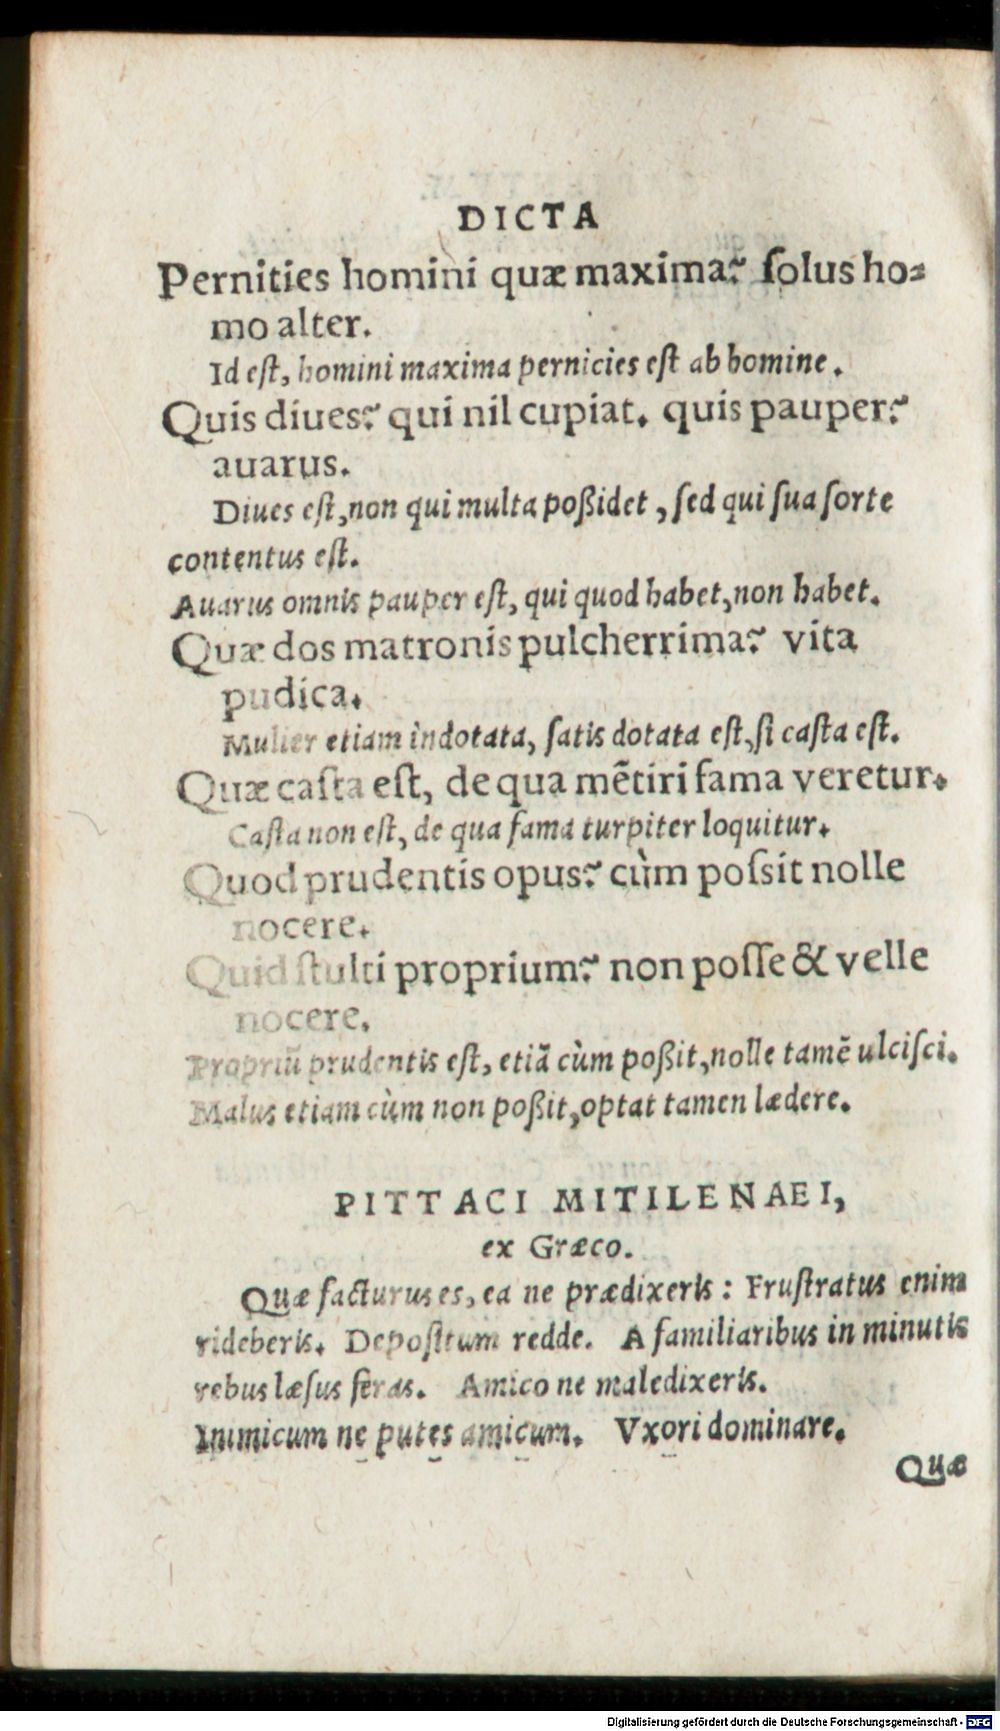 DICTA
Pernities homini quæ maxima? ſolus ho-
mo alter.
Id eſt, homini maxima pernicies eſt ab homine.
Quis diues? qui nil cupiat. quis pauper?
auarus.
Diues eſt, non qui multa poßidet, ſed qui ſua ſorte
contentus eſt.
Auarus omnis pauper eſt, qui quod habet, non habet.
Quæ dos matronis pulcherrima? vita
pudica.
Mulier etiam indotata, ſatis dotata eſt, ſi caſta eſt.
Quæ caſta eſt, de qua mẽtiri fama veretur.
Caſta non eſt, de qua fama turpiter loquitur.
Quod prudentis opus? cùm poſsit nolle
nocere.
Quid ſtulti proprium? non poſſe & velle
nocere.
Propriũ prudentis eſt, etiã cùm poßit, nolle tamẽ ulciſci.
Malus etiam cùm non poßit, optat tamen lædere.
PITTACI MITILENAEI,
ex Græco.
Quæ facturus es, ea ne prædixeris: Fruſtratus enim
rideberis. Depoſitum redde. A familiaribus in minutis
rebus læſus feras. Amico ne maledixeris.
Inimicum ne putes amicum. Vxori dominare.
Quæ
Digitalisierung gefördert durch die Deutsche Forschungsgemeinschaft - DFG